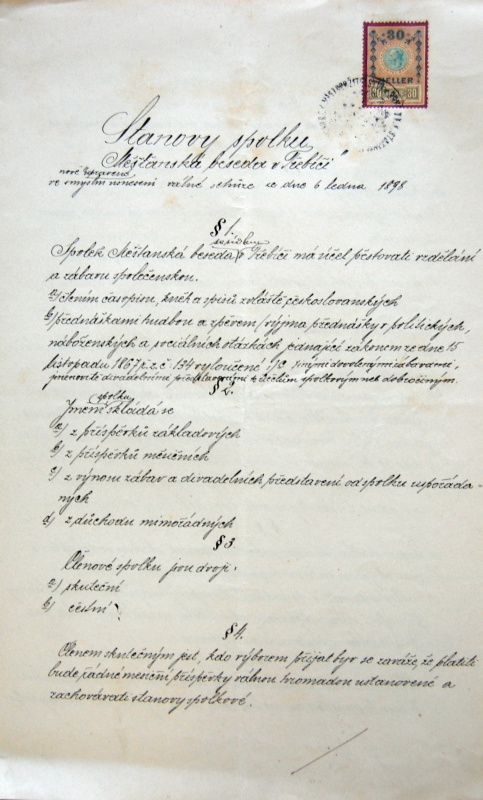 30
HELLER
80 80
Stanovy spolku
„Měšťanská beseda v Třebíči“
nově upravené
ve smyslu usnesení valné schůze ze dne 6 ledna 1898
§ 1.
se sídlem
Spolek Měšťanská beseda v Třebíči má účel pěstovati vzdělání
a zábavu společenskou.
a) čtením časopisů, kněh a spisů zvláště českoslovanských
b) přednáškami hudbou a zpěvem /: vyjma přednášky o politických,
náboženských a sociálních otázkách jednající zákonem ze dne 15
listopadu 1867 ř. z. č. 134 vyloučené :/ c) jinými dovolenými zábavami,
jmenovitě divadelními představeními k účelům spolkovým neb dobročinným.
§ 2.
spolku
Jmění skládá se
a) z příspěvků základových
b) z příspěvků měsíčních
c) z výnosu zábav a divadelních představení od spolku uspořáda-
ných
d) z důchodů mimořádných
§ 3.
Členové spolku jsou dvojí:
a) skuteční
b) čestní
§ 4.
Členem skutečným jest, kdo výborem přijat byv se zaváže, že platiti
bude řádně měsíční příspěvky valnou hromadou ustanovené a
zachovávati stanovy spolkové.